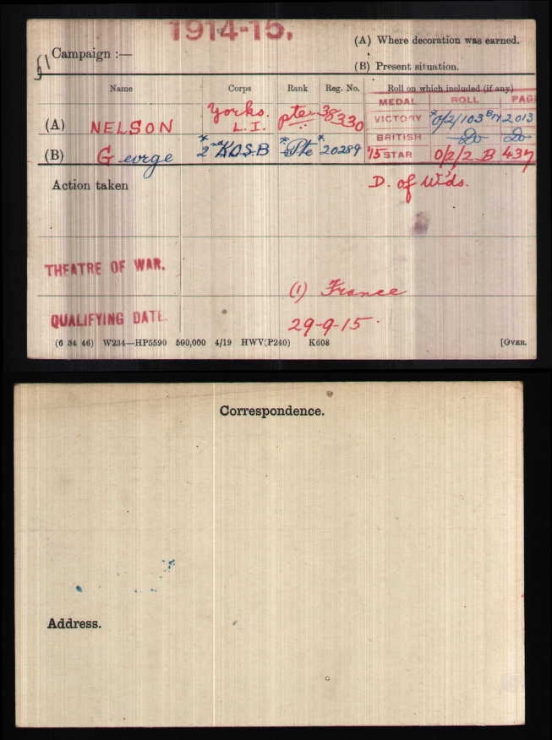 1914-15.
(A) Where decoration was earned.
Campaign :—
(B) Present situation.
Name Corps Rank Reg. No. Roll on which included (if any)
MEDAL ROLL PAGE
(A) NELSON Yorks. L.I. Pte 38330
VICTORY 2013
BRITISH Do Do
(B) George 2 KOSB Pte 20289
'15 STAR O/2/2 B 437
Action taken
D. of W'ds.
THEATRE OF WAR.
(1) France
QUALIFYING DATE
29-9-15.
(6 34 46) W234—HP5590 500,000 4/19 HWV(P240) K608 [OVER.
Correspondence.
Address.